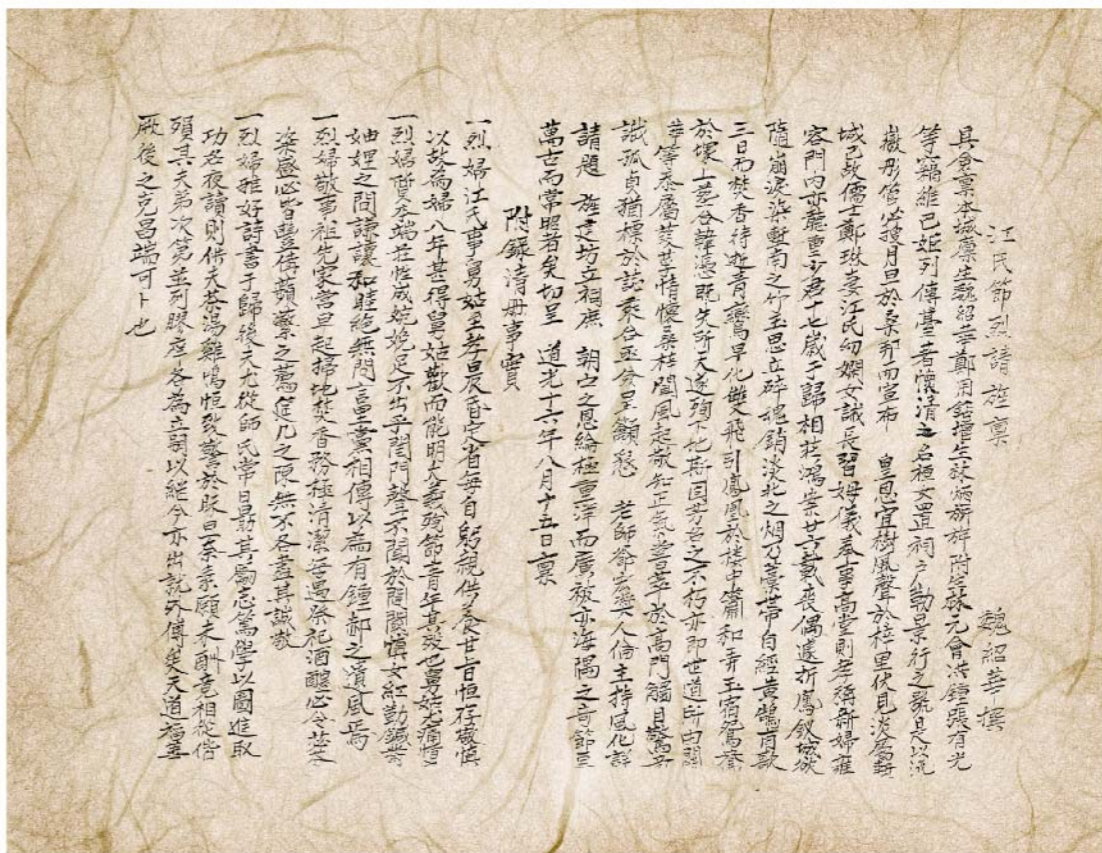 江氏節烈請旌稟　魏紹華撰
具僉稟本城廩生魏紹華鄭用鍚增生林炳旂附生林元會洪鍾張有光
等竊維已姬列傳臺著懷清之名桓女置祠戶勒景行之號是以流
徽彤管必搜月旦於桑邦而宣布　皇恩宜樹風聲於梓里伏見淡屬塹
城已故儒士鄭琳妻江氏幼嫻女誡長習姆儀奉事高堂則孝稱新婦雍
容門內亦聽重少君十七歲于歸相莊鴻案廿六載喪偶遽折鳳釵城城
隨崩淚染塹南之竹玉思立碎魂銷淡北之烟乃藁帶自經黃鵠肯歌
三日而焚香待逝青鸞早化雙飛引鳳凰於樓中簫和弄玉宿鴛鴦
於壤上墓合韓憑既失所天遂殉下地斯固芳名之不朽亦即世道所由關
華等忝屬葭莩情懷桑梓閨風起敬知正氣普萃於高門觸目驚
識孤貞猶標於誌乘合亟僉呈籲懇　老師爺宏獎人倫主持風化詳
請題　旌建坊立祠庶　朝立之恩綸極重洋而廣被亦海隅之奇節亙
萬古而常昭者矣切呈　道光十六年八月十五日稟
附錄清冊事實
一烈婦江氏事舅姑至孝晨昏定省每自躬親供養甘旨恒存敬慎
以故為婦八年甚得舅姑歡而能明大義殉節青年其歿也舅姑尤痛惜
一烈婦賢本端莊性成婉娩足不出乎閨門聲不聞於閭閾慎女紅勤鍼黹
妯娌之間謙讓和睦絕無間言里黨相傳以為有鍾郝之遺風焉
一烈婦敬事祖先家當早起掃地焚香務極清潔每遇祭祀酒醴必令
粢盛必皆豐侍蘋蘩之薦筵几之陳無不各盡其誠敬
一烈婦雅好詩書于歸後夫尤從師氏常日勗其勵志篤學以圖進取
功在夜讀則供夫茶湯雞鳴恒致警於昧旦素願未酬竟相從偕
殞其夫弟次第並列膠庠各為立嗣以繼今亦出就外傅矣天道福善
厥後之克昌端可卜也